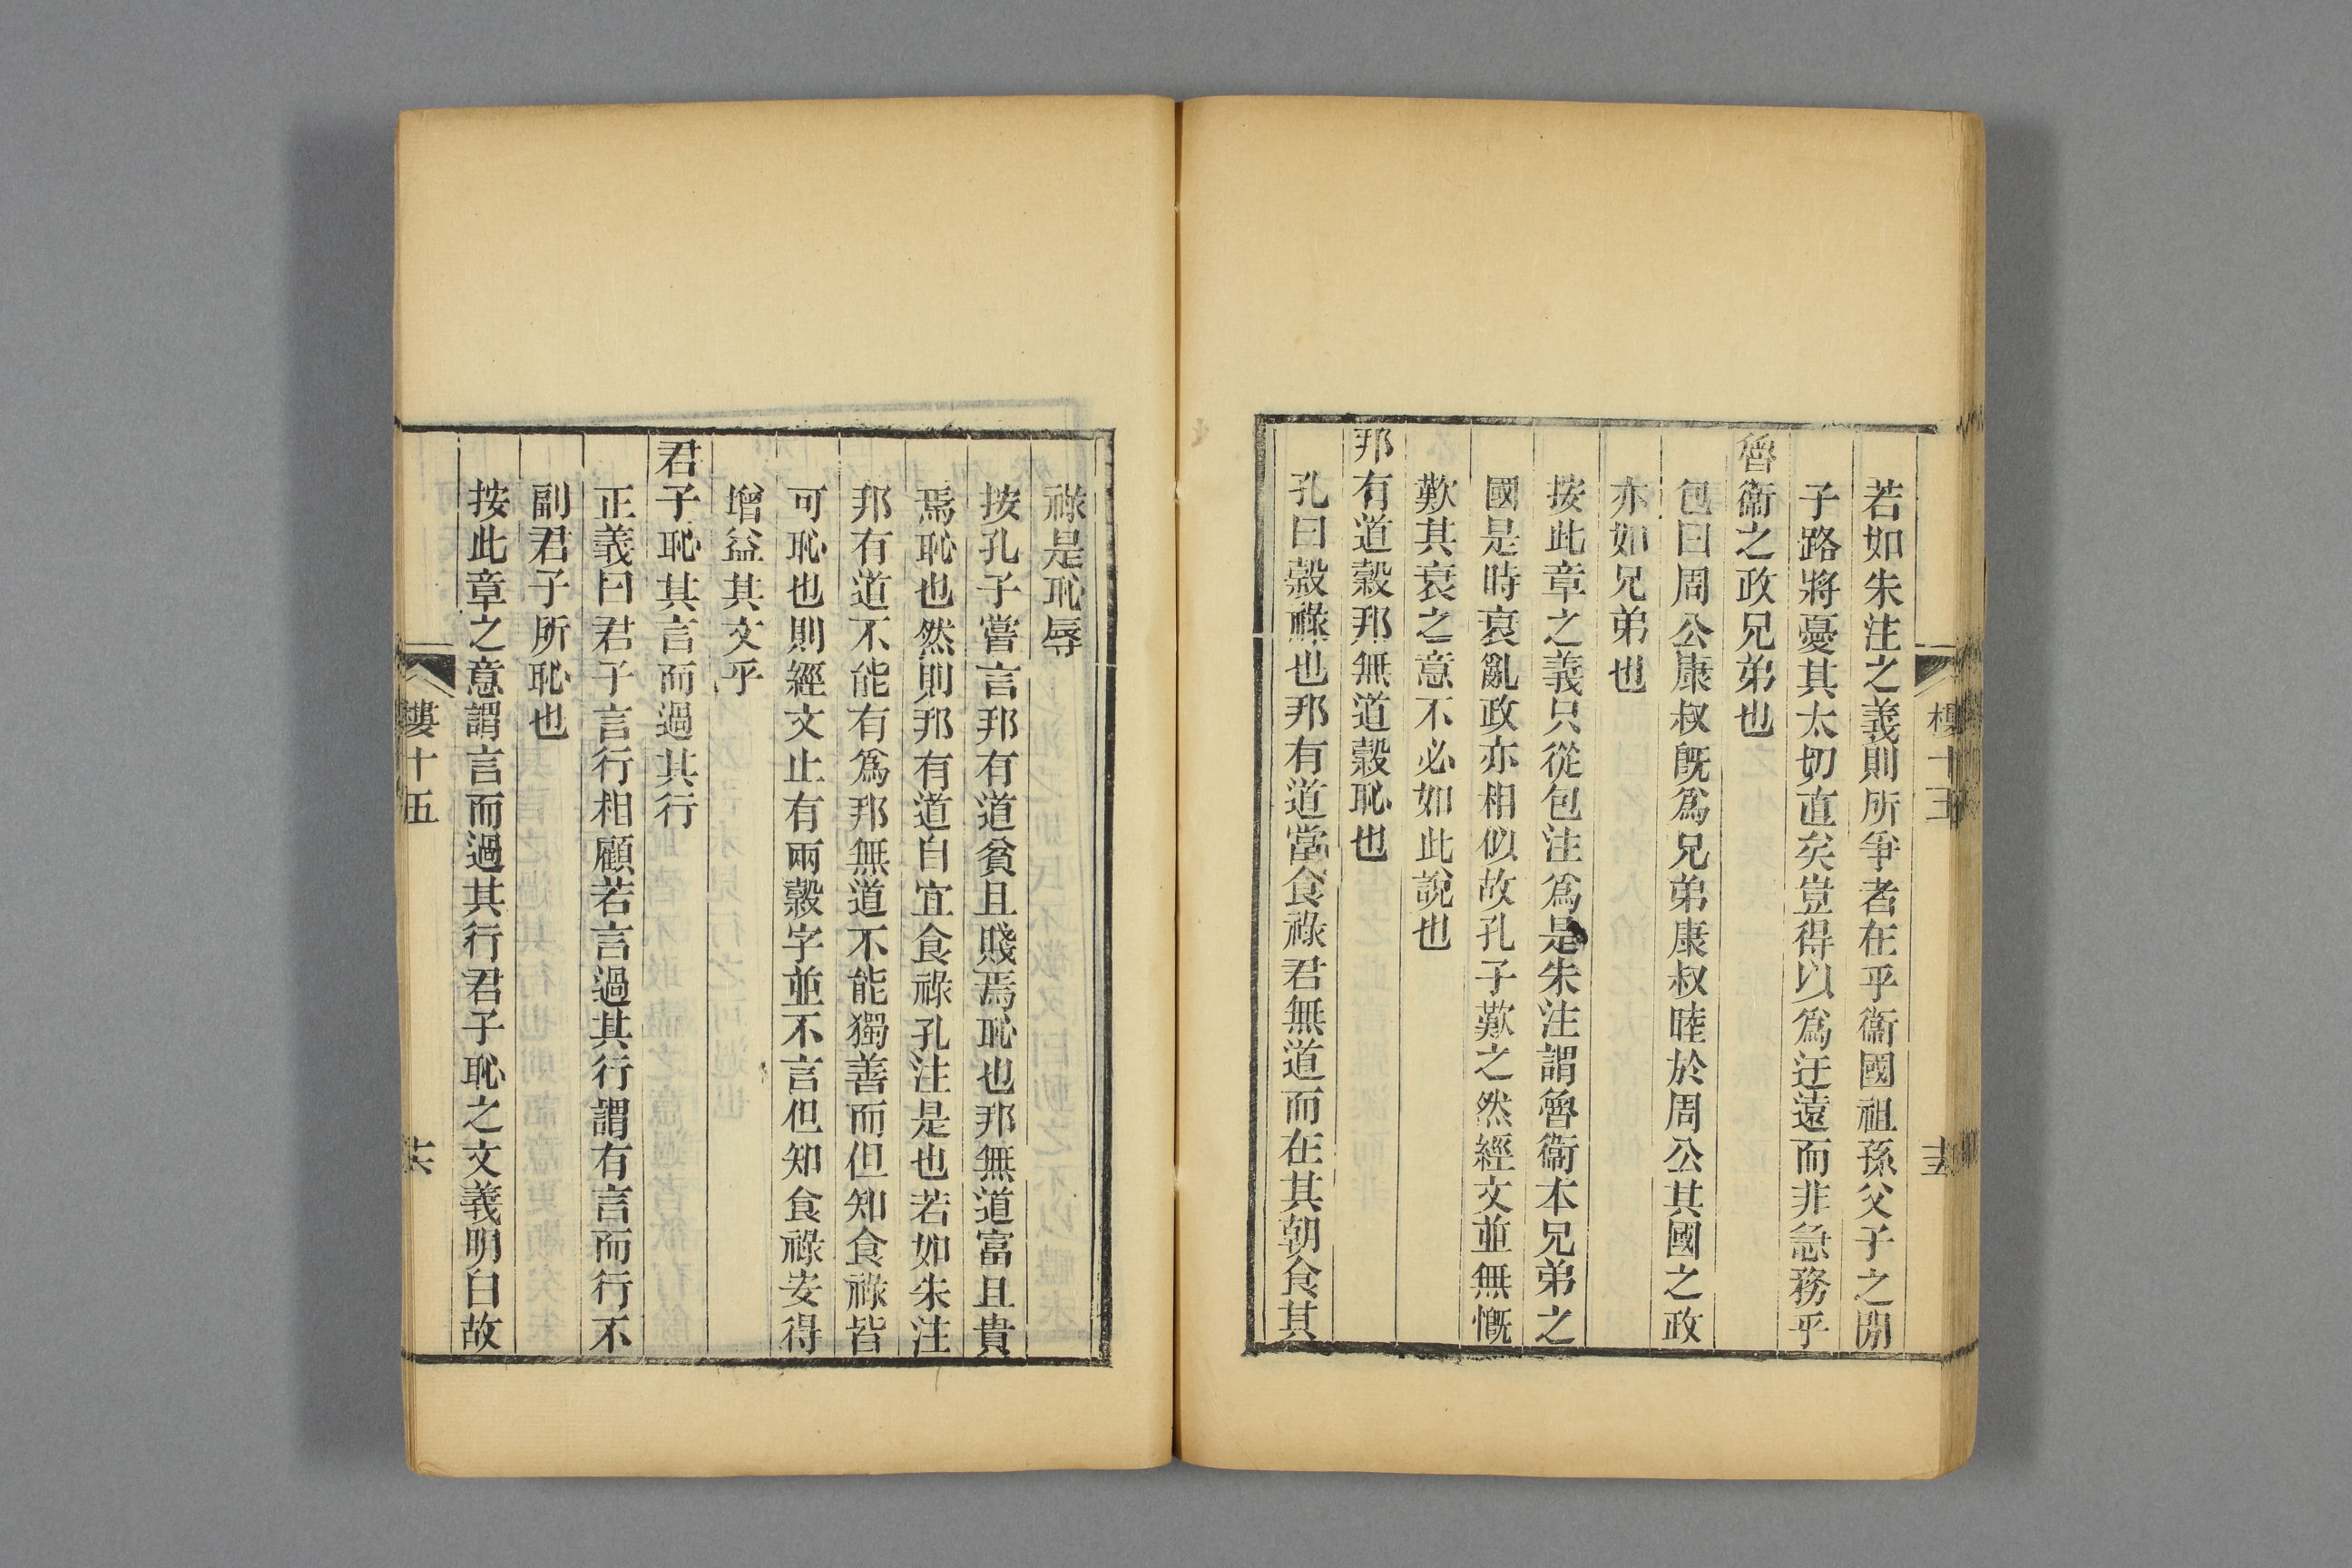 樓十五
十五
若如朱注之義則所爭者在乎衞國祖孫父子之閒
子路將憂其太切直矣豈得以爲迂遠而非急務乎
魯衞之政兄弟也
包曰周公康叔旣爲兄弟康叔睦於周公其國之政
亦如兄弟也
按此章之義只從包注爲是朱注謂魯衞本兄弟之
國是時衰亂政亦相似故孔子歎之然經文並無慨
歎其衰之意不必如此說也
邦有道穀邦無道穀恥也
孔曰穀祿也邦有道當食祿君無道而在其朝食其
祿是恥辱
按孔子嘗言邦有道貧且賤焉恥也邦無道富且貴
焉恥也然則邦有道自宜食祿孔注是也若如朱注
邦有道不能有爲邦無道不能獨善而但知食祿皆
可恥也則經文止有兩穀字並不言但知食祿安得
增益其文乎
君子恥其言而過其行
正義曰君子言行相顧若言過其行謂有言而行不
副君子所恥也
按此章之意謂言而過其行君子恥之文義明白故
樓十五
十六